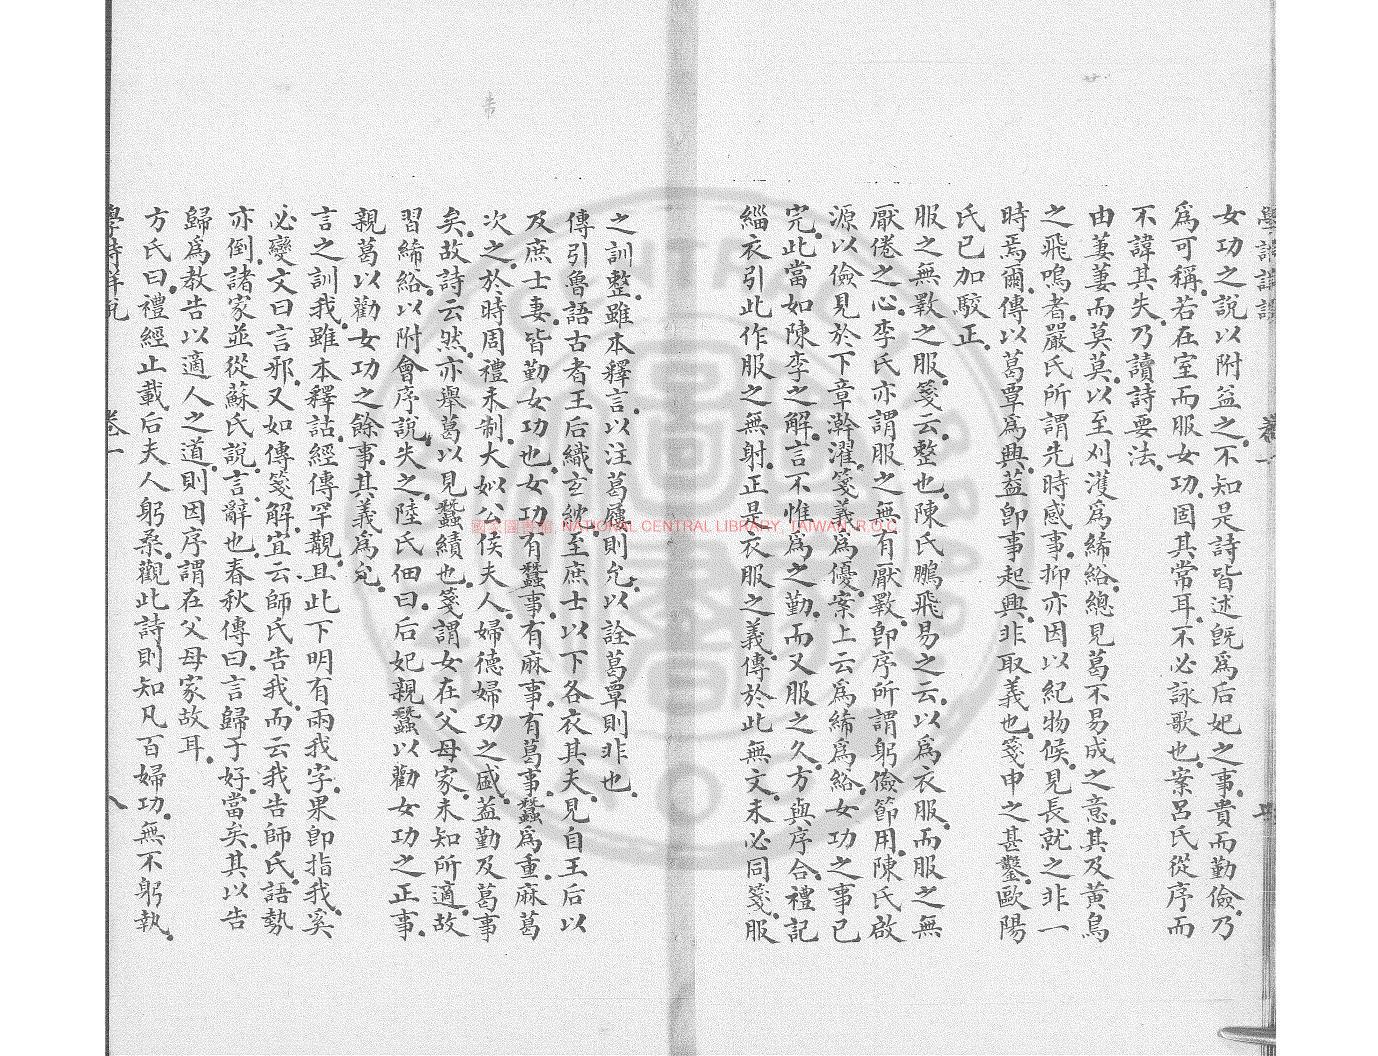 女功之說以附益之不知是詩皆述既爲后妃之事貴而勤儉乃
爲可稱若在室而服女功固其常耳不必詠歌也案呂氏從序而
不諱其失乃讀詩要法
由萋萋而莫莫以至刈濩爲絺綌總見葛不易成之意其及黃鳥
之飛鳴者嚴氏所謂先時感事抑亦因以紀物候見長就之非一
時焉爾傳以葛覃爲興葢卽事起興非取義也箋申之甚鑿歐陽
氏已加駮正
服之無斁之服箋云整也陳氏鵬飛易之云以爲衣服而服之無
厭倦之心李氏亦謂服之無有厭斁卽序所謂躬儉節用陳氏啟
源以儉見於下章澣濯箋義爲優案上云爲絺爲綌女功之事已
完此當如陳李之解言不惟爲之勤而又服之久方與序合禮記
緇衣引此作服之無射正是衣服之義傳於此無文未必同箋服
之訓整雖本釋言以注葛屨則允以詮葛覃則非也
傳引魯語古者王后織玄紞至庶士以下各衣其夫見自王后以
及庶士妻皆勤女功也女功有蠶事有麻事有葛事蠶爲重麻葛
次之於時周禮未制大姒公侯夫人婦德婦功之盛葢勤及葛事
矣故詩云然亦舉葛以見蠶績也箋謂女在父母家未知所適故
習絺綌以附會序說失之陸氏佃曰后妃親蠶以勸女功之正事
親葛以勸女功之餘事其義爲允
言之訓我雖本釋詁經傳罕覩且此下明有兩我字果卽指我奚
必變文曰言邪又如傳箋解宜云師氏告我而云我告師氏語勢
亦倒諸家並從蘇氏說言辭也春秋傳曰言歸于好當矣其以告
歸爲教告以適人之道則因序謂在父母家故耳
方氏曰禮經止載后夫人躬桑觀此詩則知凡百婦功無不躬執
學詩詳說
卷一
八
國家圖書館 NATIONAL CENTRAL LIBRARY, TAIWAN, R.O.C